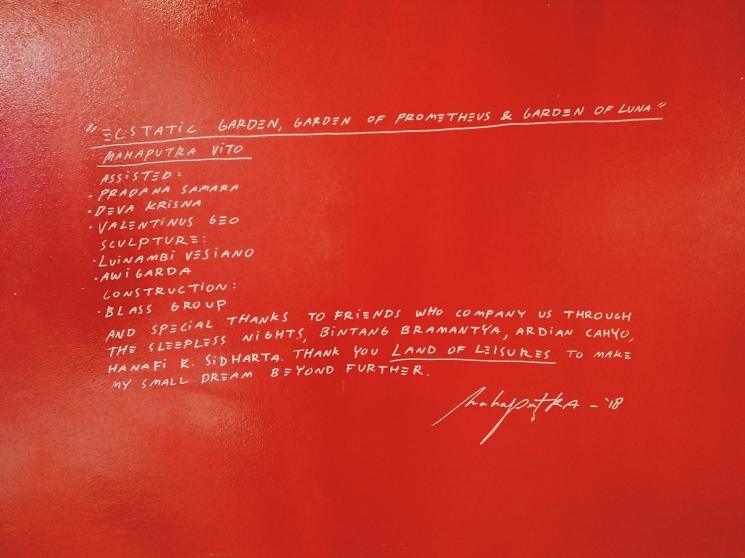 "ECSTATIC GARDEN, GARDEN OF PROMETHEUS & GARDEN OF LUNA"
MAHAPUTRA VITO
ASSISTED:
• PRADANA SAMARA
• DEVA KRISNA
• VALENTINUS GEO
SCULPTURE:
• LUINAMBI VESIANO
• AWIGARDA
CONSTRUCTION:
• BLASS GROUP
AND SPECIAL THANKS TO FRIENDS WHO COMPANY US THROUGH
THE SLEEPLESS NIGHTS, BINTANG BRAMANTYA, ARDIAN CAHYO,
HANAFI K. SIDHARTA. THANK YOU LAND OF LEISURES TO MAKE
MY SMALL DREAM BEYOND FURTHER.
Mahaputra - '18